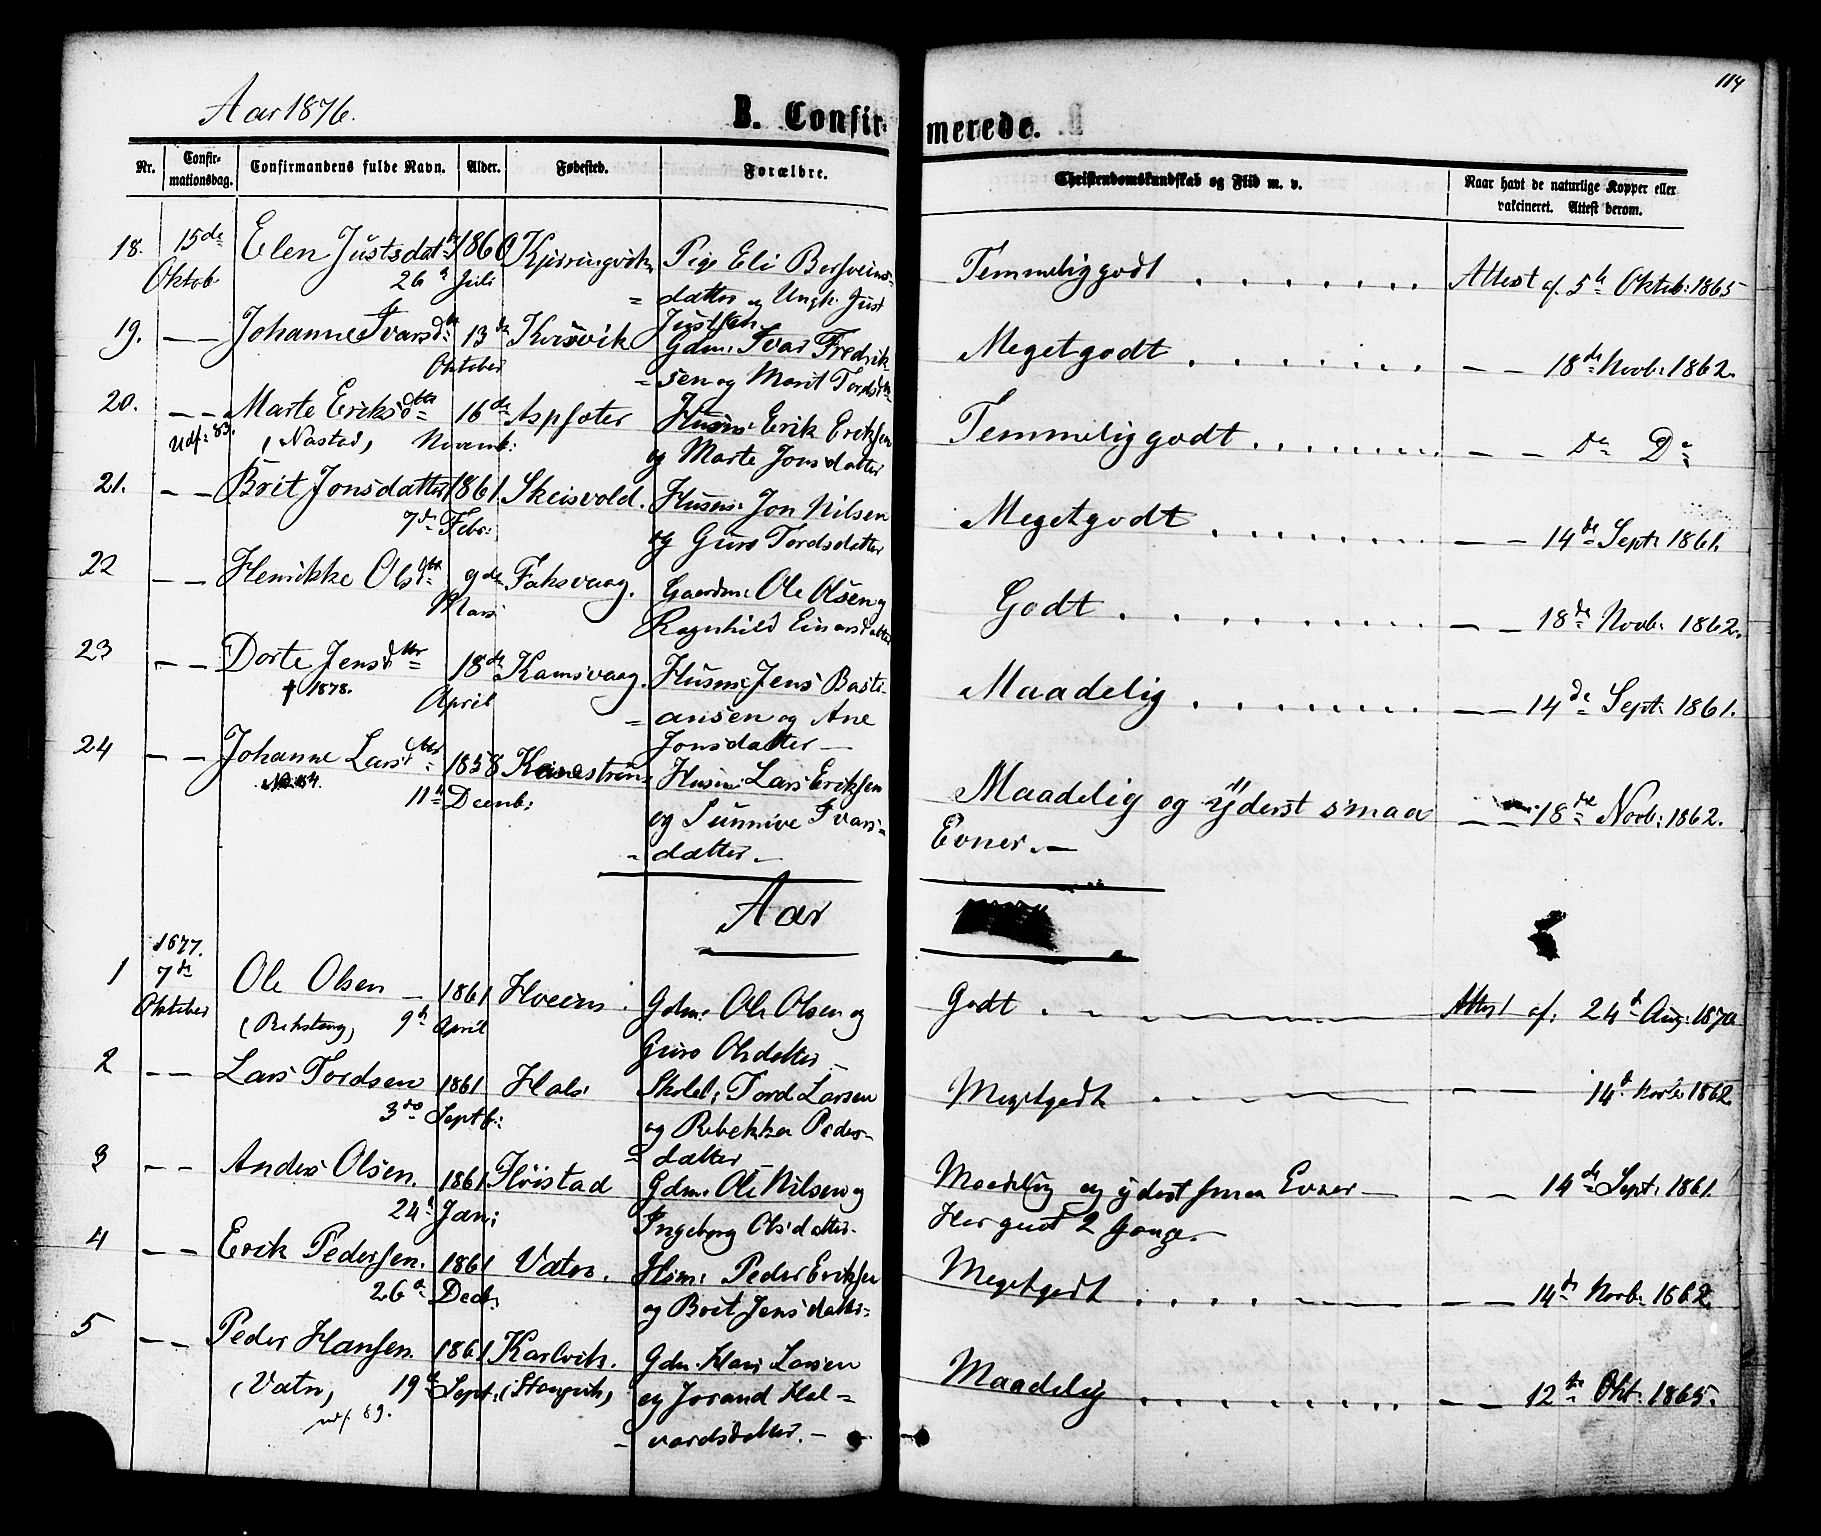 114
Aar 1876.
B. Confirmerede.
Nr. Confirmationsdag. Confirmandens fulde Navn. Alder. Fødested. Forældre. Christendomskundskab og Flid m. v. Naar havt de naturlige Kopper eller vakcineret. Attest derom.
18. 15de Elen Justsdatr 1860 Kjørringvik Pige Eli Bersveins- Temmelig godt Attest af 5te Oktob: 1865
Oktob 26de Juli = datter og Ungk. Just
Justsen
19. — — Johanne Ivarsdtr 13de Korsvik Gdm: Ivar Fredrik- Meget godt — — 18de Novb: 1862.
Oktober = sen og Marit Tordsdtr
20. — — Marte Eriksdtr 16de Aspsæter Husm: Erik Eriksen Temmelig godt — — Do Do
Udf: 83. (Nastad) Novemb: og Marte Jonsdatter
21. — — Brit Jonsdatter 1861 Skeisvold. Husm: Jon Nilsen Meget godt — — 14de Sept: 1861.
7de Febr: og Guro Tordsdatter
22 — — Henrikke Olsdtr 9de Foksvaag. Gaardm: Ole Olsen og Godt — — 18de Novb: 1862.
Mars Ragnhild Einarsdatter
23 — — Dorte Jensdtr 18de Ramsvaag. Husm: Jens Basti- Maadelig — — 14de Sept: 1861.
† 1878. April = ansen og Ane
Jonsdatter —
24 — — Johanne Larsdtr 1858 Kanestrøm Husm: Lars Eriksen Maadelig og yderst smaa — — 18de Novb: 1862.
11te Decemb: og Sunnive Ivars- Evner. —
= datter —
Aar
1877.
1 7de Ole Olsen — 1861 Hoeem Gdm: Ole Olsen og Godt Attest af: 24de Aug: 1870
Oktober (Rikstang) 9de April Guro Olsdatter —
2 — — Lars Tordsen 1861 Hals Skolel: Tord Larsen Meget godt — — 14de Novb 1862.
3de Septb: og Rebekka Peders-
= datter
3 — — Anders Olsen. 1861 Fløistad Gdm: Ole Nilsen og Maadelig og yderst smaa Evner — — — 14de Sept: 1861.
24de Jan: Ingeborg Olsdatter. Har gaaet 2 Gange. —
4 — — Erik Pedersen. 1861 Vatn. Hsm: Peder Eriksen Meget godt — — 14de Novb: 1862.
26de Decb: og Brit Jensdatter
5 — — Peder Hansen. 1861 Karlvik. Gdm. Hans Larsen Maadelig — — 12te Okt: 1865.
(Vatn) 19de Sept: og Jorand Hal-
udf. 83. = vardsdatter. —